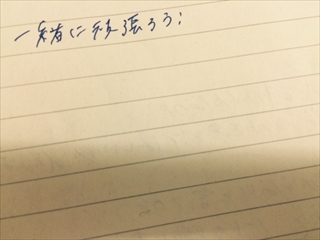 一緒に頑張ろう!